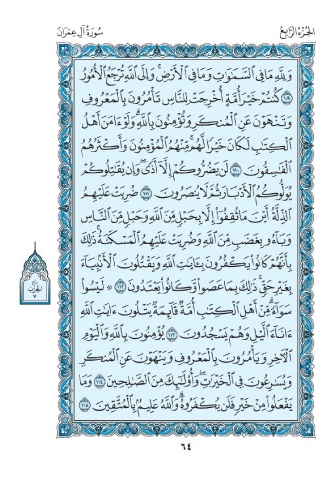 الجُزْءُ الرَّابِعُ
سُورَةُ آلِ عِمْرَانَ
وَلِلَّهِ مَا فِي ٱلسَّمَٰوَٰتِ وَمَا فِي ٱلْأَرْضِ ۚ وَإِلَى ٱللَّهِ تُرْجَعُ ٱلْأُمُورُ
١٠٩ كُنتُمْ خَيْرَ أُمَّةٍ أُخْرِجَتْ لِلنَّاسِ تَأْمُرُونَ بِٱلْمَعْرُوفِ
وَتَنْهَوْنَ عَنِ ٱلْمُنكَرِ وَتُؤْمِنُونَ بِٱللَّهِ ۗ وَلَوْ ءَامَنَ أَهْلُ
ٱلْكِتَٰبِ لَكَانَ خَيْرًا لَّهُم ۚ مِّنْهُمُ ٱلْمُؤْمِنُونَ وَأَكْثَرُهُمُ
ٱلْفَٰسِقُونَ ١١٠ لَن يَضُرُّوكُمْ إِلَّآ أَذًى ۖ وَإِن يُقَٰتِلُوكُمْ
يُوَلُّوكُمُ ٱلْأَدْبَارَ ثُمَّ لَا يُنصَرُونَ ١١١ ضُرِبَتْ عَلَيْهِمُ
ٱلذِّلَّةُ أَيْنَ مَا ثُقِفُوٓا۟ إِلَّا بِحَبْلٍ مِّنَ ٱللَّهِ وَحَبْلٍ مِّنَ ٱلنَّاسِ
وَبَآءُو بِغَضَبٍ مِّنَ ٱللَّهِ وَضُرِبَتْ عَلَيْهِمُ ٱلْمَسْكَنَةُ ۚ ذَٰلِكَ
بِأَنَّهُمْ كَانُوا۟ يَكْفُرُونَ بِـَٔايَٰتِ ٱللَّهِ وَيَقْتُلُونَ ٱلْأَنۢبِيَآءَ
بِغَيْرِ حَقٍّ ۚ ذَٰلِكَ بِمَا عَصَوا۟ وَّكَانُوا۟ يَعْتَدُونَ ١١٢ ۞ لَيْسُوا۟
سَوَآءً ۗ مِّنْ أَهْلِ ٱلْكِتَٰبِ أُمَّةٌ قَآئِمَةٌ يَتْلُونَ ءَايَٰتِ ٱللَّهِ
ءَانَآءَ ٱلَّيْلِ وَهُمْ يَسْجُدُونَ ١١٣ يُؤْمِنُونَ بِٱللَّهِ وَٱلْيَوْمِ
ٱلْءَاخِرِ وَيَأْمُرُونَ بِٱلْمَعْرُوفِ وَيَنْهَوْنَ عَنِ ٱلْمُنكَرِ
وَيُسَٰرِعُونَ فِي ٱلْخَيْرَٰتِ ۖ وَأُو۟لَٰٓئِكَ مِنَ ٱلصَّٰلِحِينَ ١١٤ وَمَا
يَفْعَلُوا۟ مِنْ خَيْرٍ فَلَن يُكْفَرُوهُ ۗ وَٱللَّهُ عَلِيمٌۢ بِٱلْمُتَّقِينَ ١١٥
٦٤